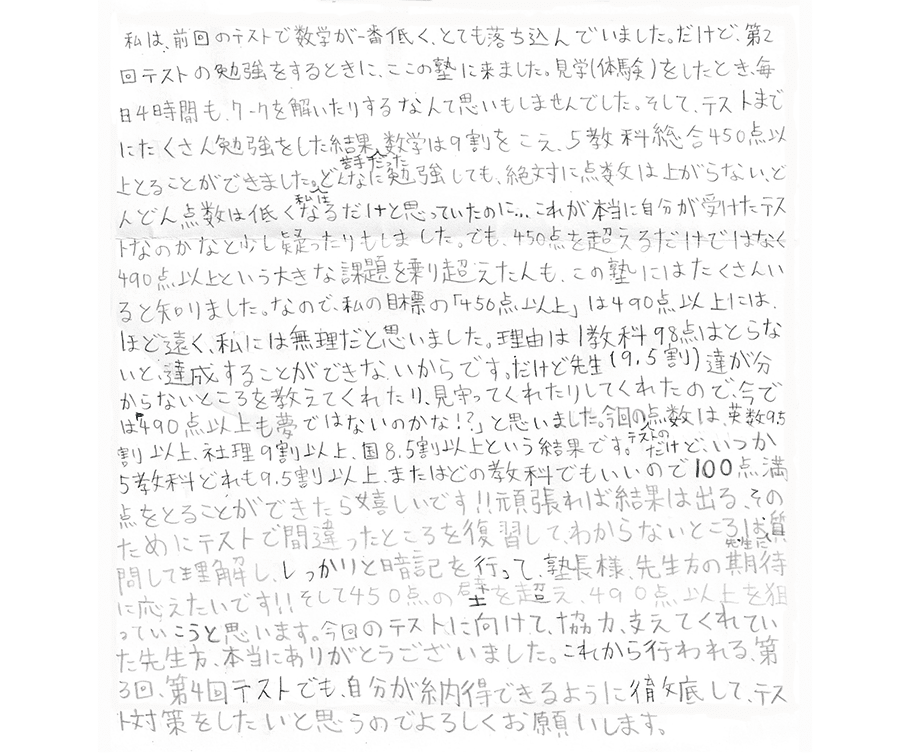 私は、前回のテストで数学が一番低く、とても落ち込んでいました。だけど、第2
回テストの勉強をするときに、ここの塾に来ました。見学(体験)をしたとき、毎
日4時間も、ワークを解いたりするなんて思いもしませんでした。そして、テストまで
にたくさん勉強をした結果、苦手だった数学は9割をこえ、5教科総合450点以
上とることができました。私はどんなに勉強しても、絶対に点数は上がらない、ど
んどん点数は低くなるだけと思っていたのに…これが本当に自分が受けたテス
トなのかなと少し疑ったりもしました。でも、450点を超えるだけではなく
490点以上という大きな課題を乗り超えた人も、この塾にはたくさんい
ると知りました。なので、私の目標の「450点以上」は490点以上には、
ほど遠く、私には無理だと思いました。理由は1教科98点はとらな
いと、達成することができないからです。だけど先生(9.5割)達が分
からないところを教えてくれたり、見守ってくれたりしてくれたので、今で
は「490点以上も夢ではないのかな!?」と思いました。今回のテストの点数は、英数9.5
割以上、社理9割以上、国8.5割以上という結果です。だけど、いつか
5教科どれも9.5割以上、またはどの教科でもいいので100点満
点をとることができたら嬉しいです!!頑張れば結果は出る、その
ためにテストで間違ったところを復習して、わからないところは先生に質
問して理解し、しっかりと暗記を行って、塾長様、先生方の期待
に応えたいです!!そして450点の壁を超え、490点以上を狙
っていこうと思います。今回のテストに向けて、協力、支えてくれてい
た先生方、本当にありがとうございました。これから行われる、第
3回、第4回テストでも、自分が納得できるように徹底して、テス
ト対策をしたいと思うのでよろしくお願いします。